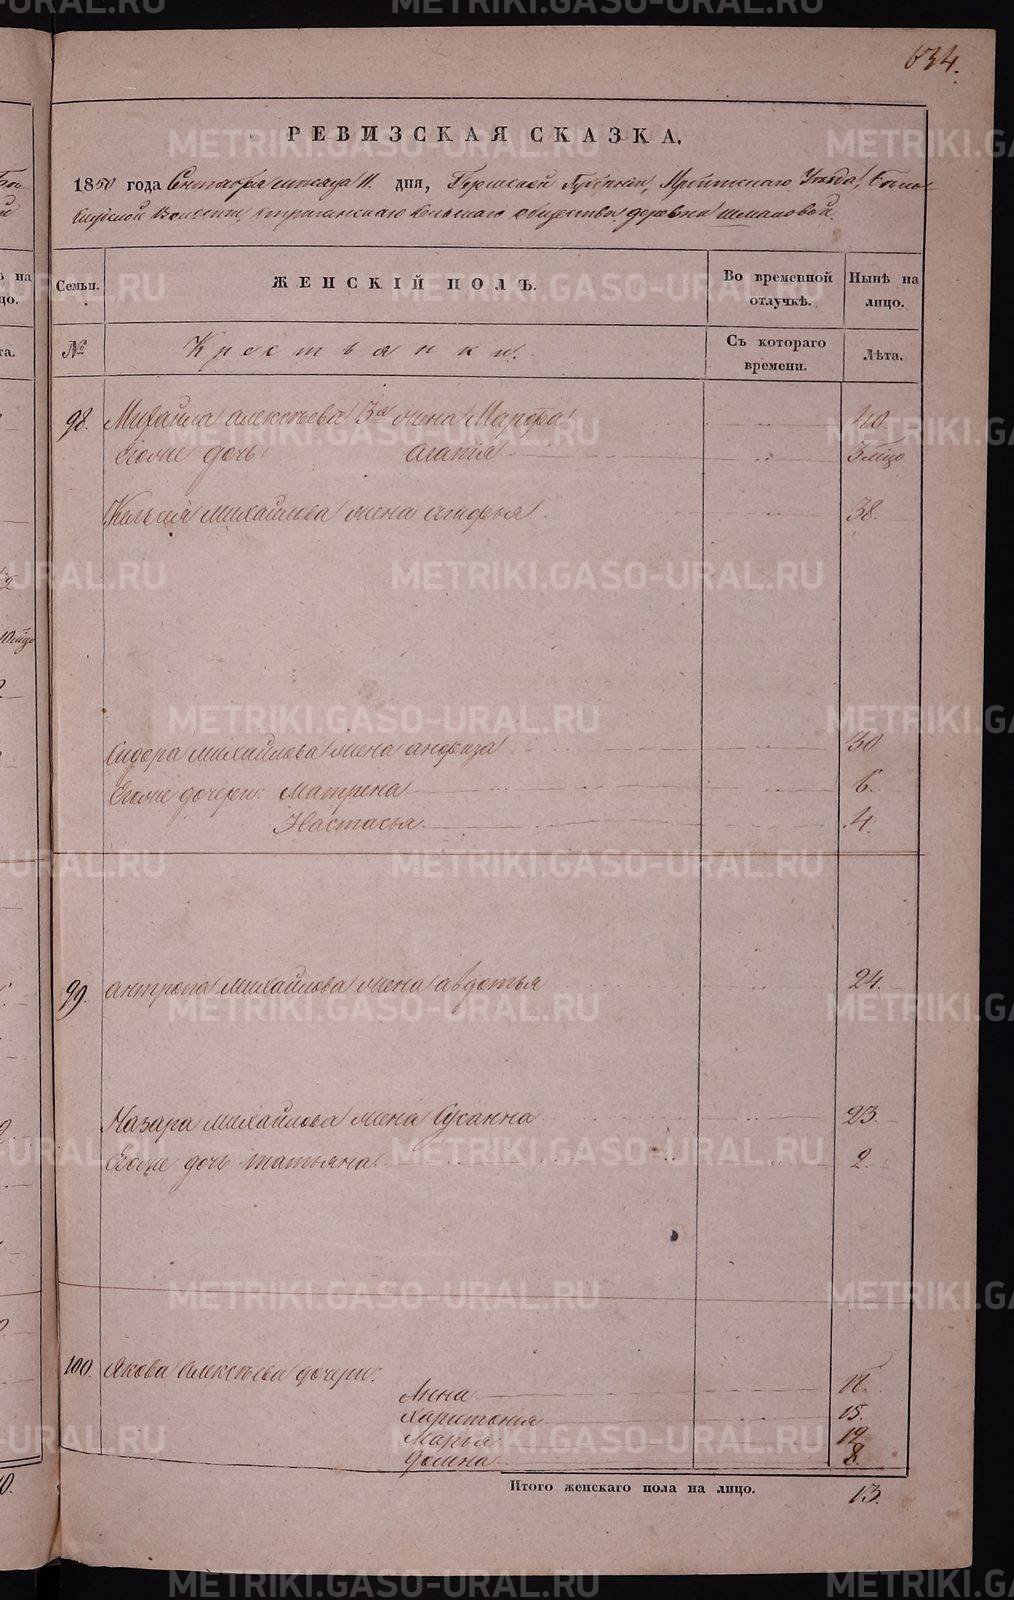 634.
РЕВИЗСКАЯ СКАЗКА.
1850 года Сентября месяца 11. дня, Пермской Губернии, Ирбитского Уезда, Бело-
слудской Волости, Стриганского сельского общества деревни Шмаковой.
Семьи. ЖЕНСКІЙ ПОЛЪ. Во временной отлучкѣ. Нынѣ на лицо.
№ Крестьянки. Съ котораго времени. Лѣта.
98. Михайла Алексѣева 3я жена Марфа 40
Его же дочь Агапія 3 мѣс
Михайлова жена 38.
Сидора Михайлова жена Анфиза 30
Его же дочери: Матрена 6.
Настасья 4.
99. Антропа Михайлова жена Авдотья 24.
Назара Михайлова жена Сусанна 23.
Его же дочь Татьяна 2.
100. Якова Алексѣева дочери:
Анна
Харитонья 15.
Марья 12.
Домна 8.
Итого женскаго пола на лицо. 13.
METRIKI.GASO-URAL.RU